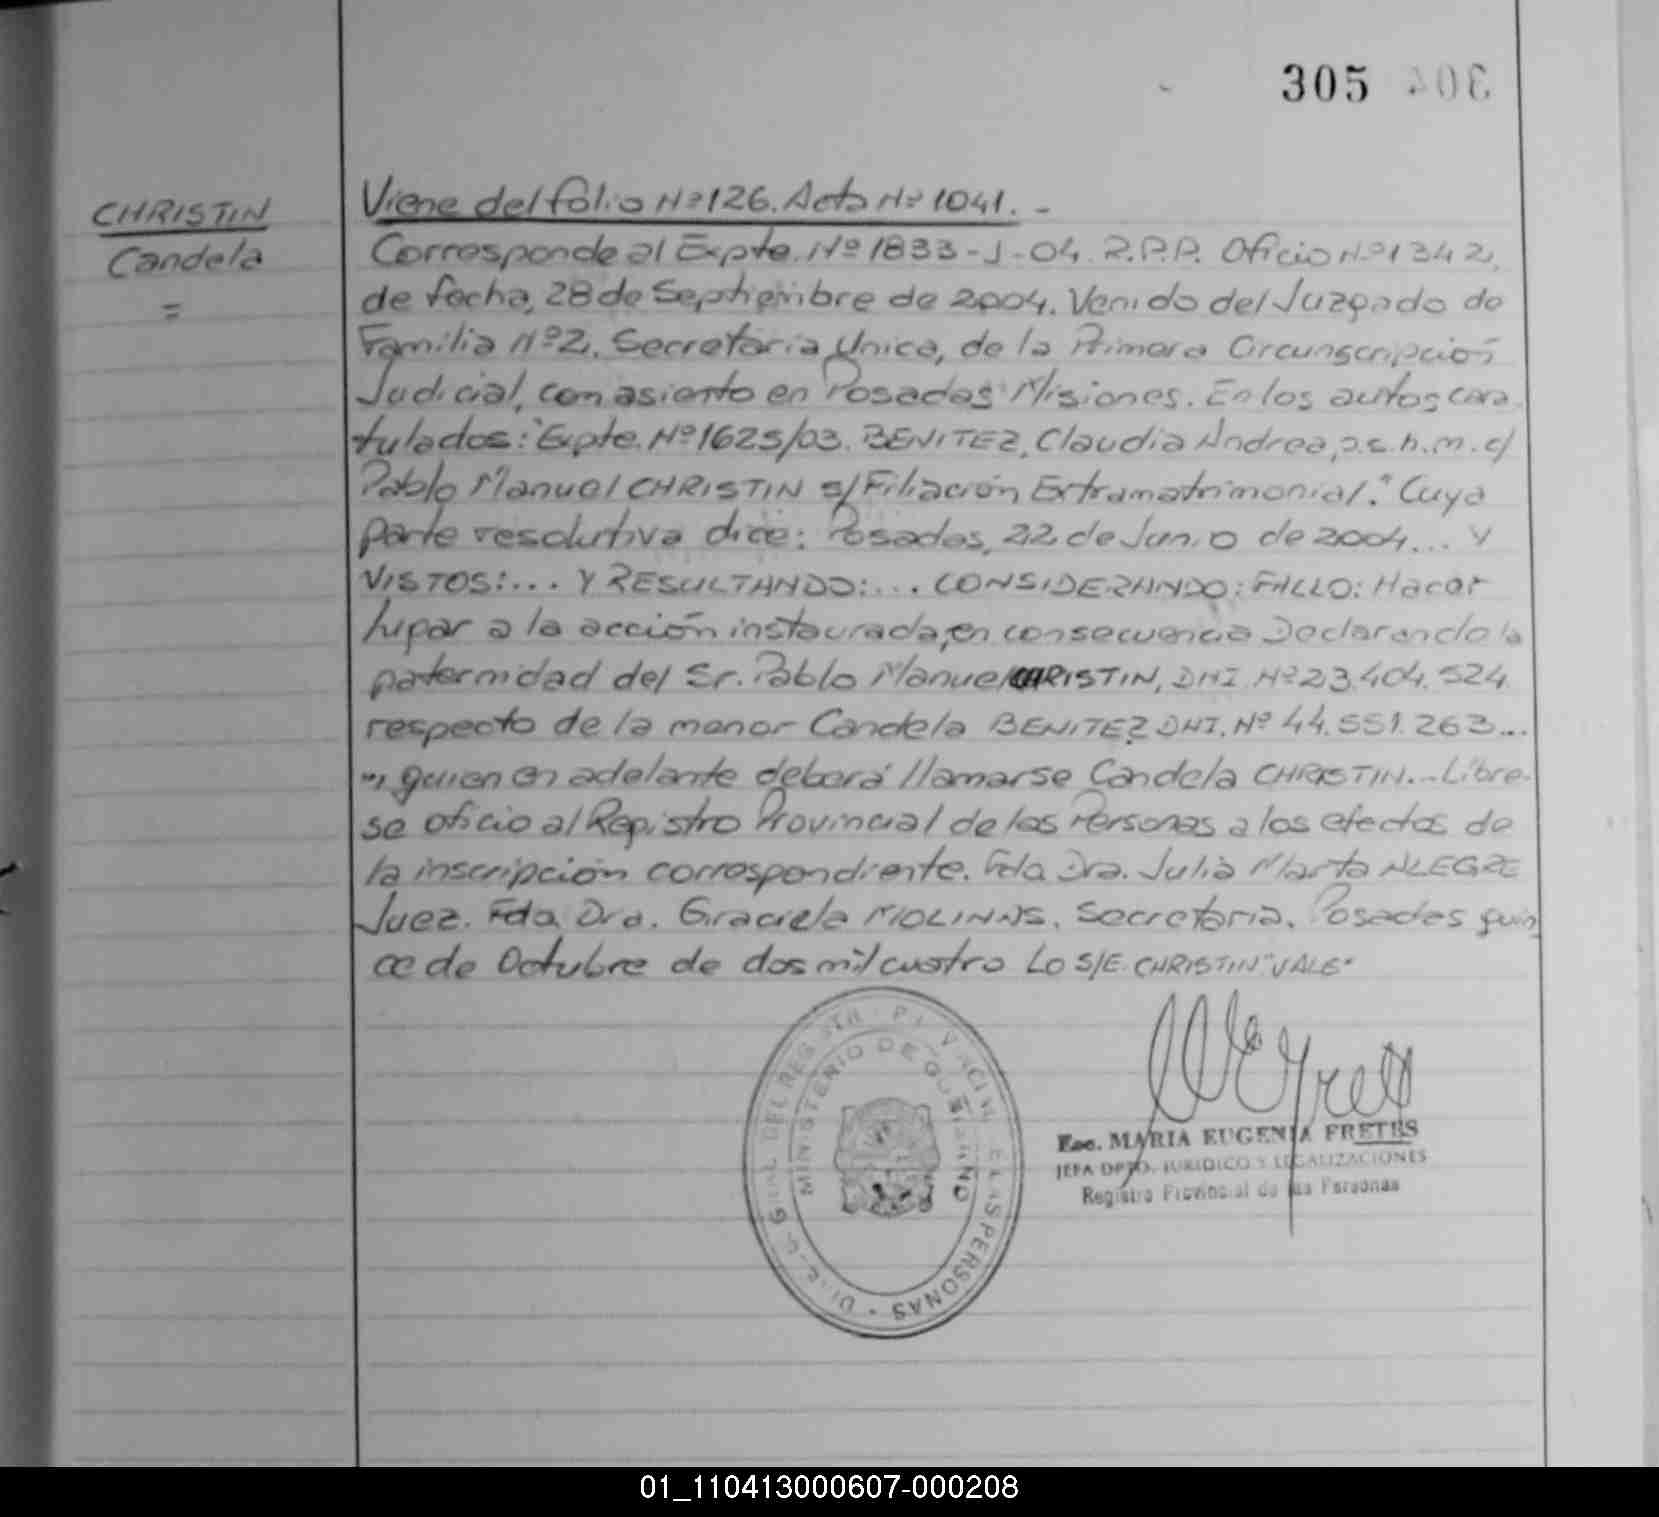 305 304
CHRISTIN
Candela
=
Viene del folio Nº 126. Acta Nº 1041. -
Corresponde al Expte. Nº 1833-J-04. R.P.P. Oficio Nº 1342,
de fecha, 28 de Septiembre de 2004. Venido del Juzgado de
Familia Nº 2, Secretaria Unica, de la Primera Circunscripción
Judicial, con asiento en Posadas Misiones. En los autos cara
tulados: "Expte. Nº 1625/03. BENITEZ, Claudia Andrea, p.s.h.m. c/
Pablo Manuel CHRISTIN s/ Filiación Extramatrimonial." Cuya
parte resolutiva dice: Posadas, 22 de Junio de 2004... Y
VISTOS:... Y RESULTANDO:... CONSIDERANDO: FALLO: Hacer
lugar a la acción instaurada, en consecuencia Declarando la
paternidad del Sr. Pablo Manuel CHRISTIN, DNI. Nº 23.404.524
respecto de la menor Candela BENITEZ DNI. Nº 44.551.263...
"", quien en adelante deberá llamarse Candela CHRISTIN.-- Libre-
se oficio al Registro Provincial de las Personas a los efectos de
la inscripción correspondiente. Fdo Dra. Julia Marta ALEGRE
Juez. Fdo. Dra. Graciela MOLINAS. Secretaria. Posadas quin
ce de Octubre de dos mil cuatro Lo S/E. CHRISTIN "VALE"
DEL REGISTRO PROVINCIAL DE LAS PERSONAS
MINISTERIO DE GOBIERNO
Esc. MARIA EUGENIA FRETES
JEFA DPTO. JURIDICO Y LEGALIZACIONES
Registro Provincial de las Personas
01_110413000607-000208